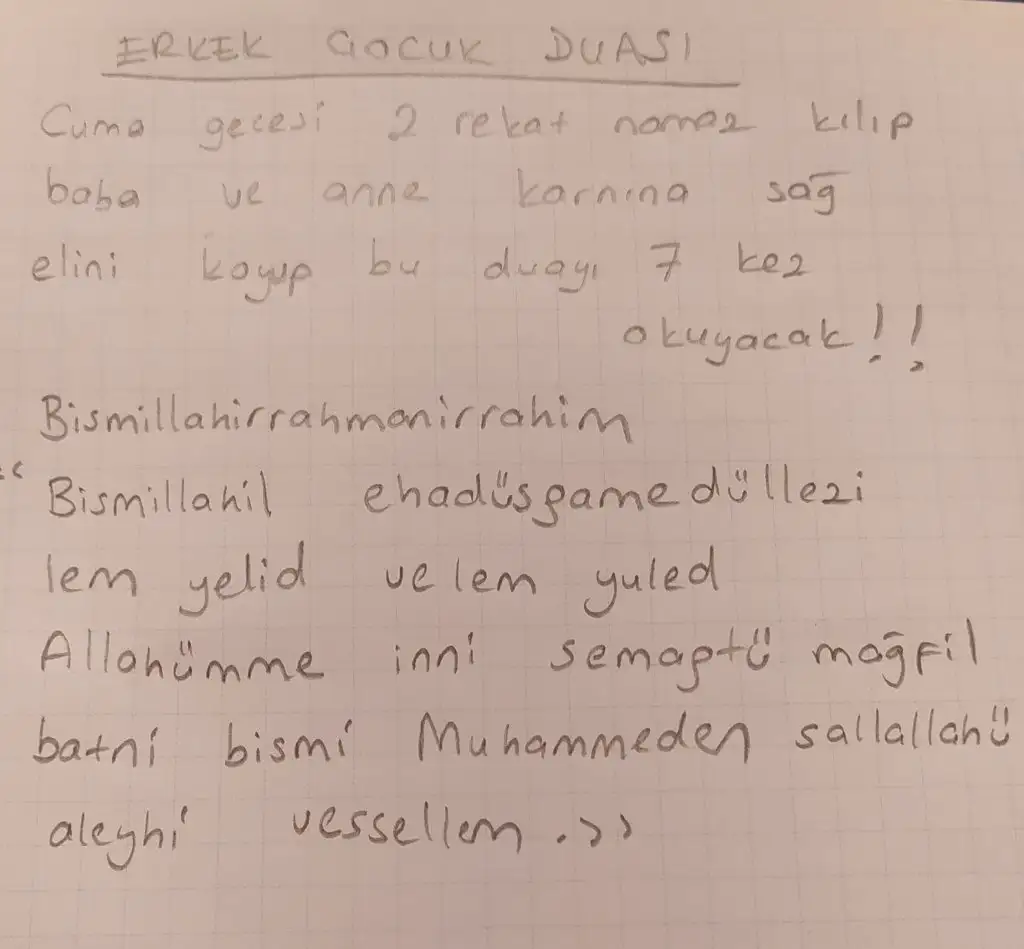 ERKEK ÇOCUK DUASI
Cuma gecesi 2 rekat namaz kılıp
baba ve anne karnına sağ
elini koyup bu duayı 7 kez
okuyacak!!
Bismillahirrahmanirrahim
"Bismillahil ehadüsşamedüllezi
lem yelid velem yuled
Allahümme inni semaptü mağfil
batni bismi Muhammeden sallallahü
aleyhi vessellem."